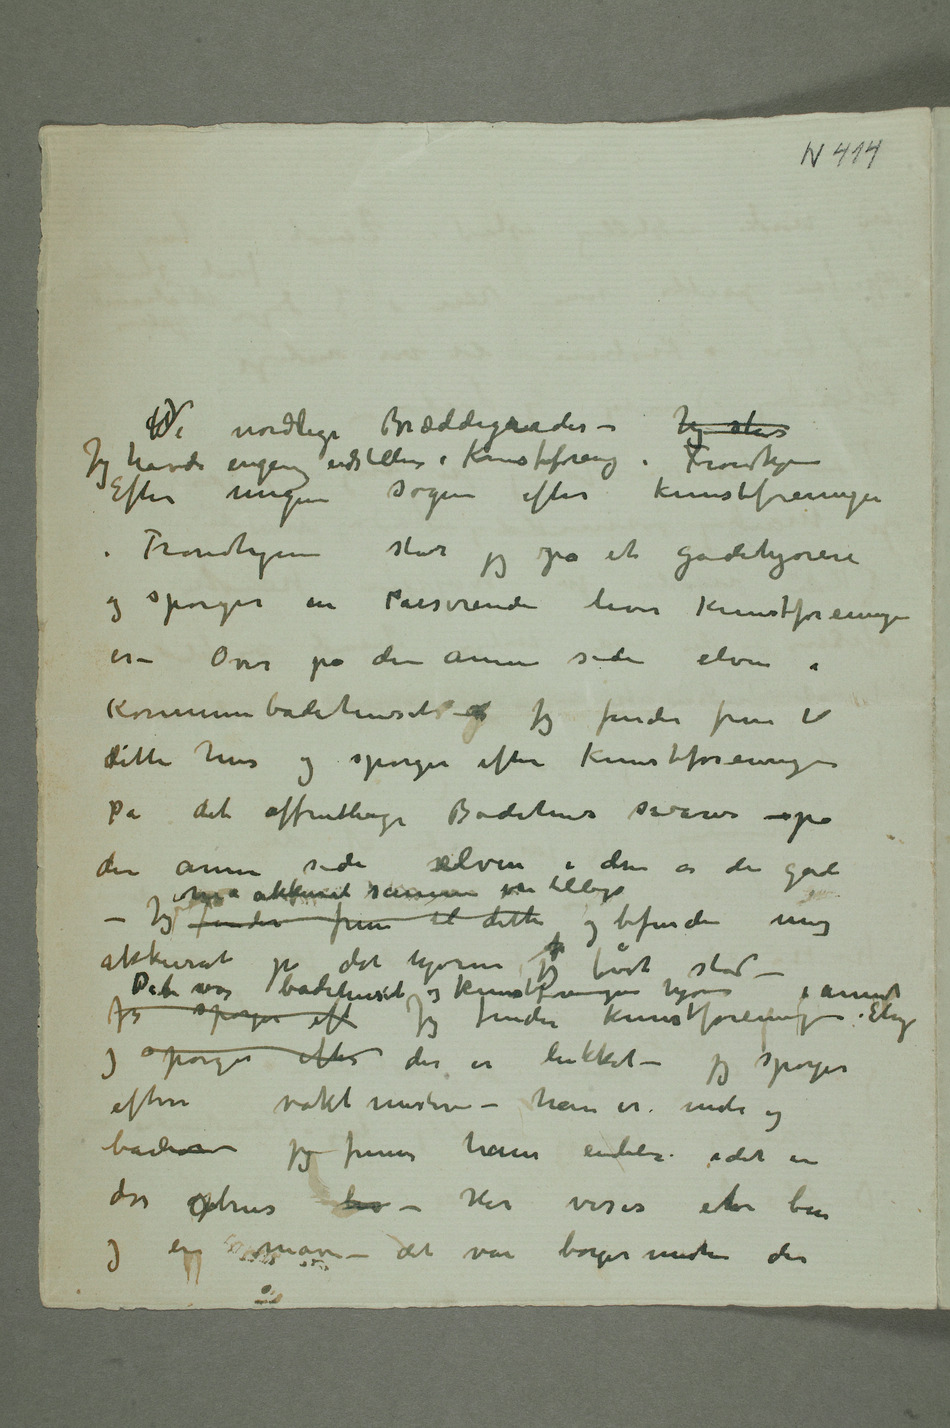 N 414
De nordlige Bræddegrader –
Jeg havde engang udstilling i Kunstforeng i Trondhjem
Efter megen søgen efter Kunstforeningen
i Trondhjem står jeg på et gadehjørne
og spørger en Passerende hvor Kunstforeningen
er – Over på den anden side elven i
Kommunebadehuset – Jeg finder frem til
dette hus og spørger efter Kunstforeningen
På det offentlige Badehus svares – på
den anden side elven i den og den gade
må akkurat samme vei tilbage
– Jeg finder frem til dette og befinder mig
akkurat på det hjørne jeg først stod –
Det var badehuset og Kunstforeningen i anden
Jeg spørger eft Jeg finder Kunstforeningen Etag
og spørger efter der er lukket – jeg spørger
efter vaktmesteren – han er inde og
bader jeg finder ham endelig idet en
dør åbnes – Her vises et ben
og en mave – det var borgermesteren der